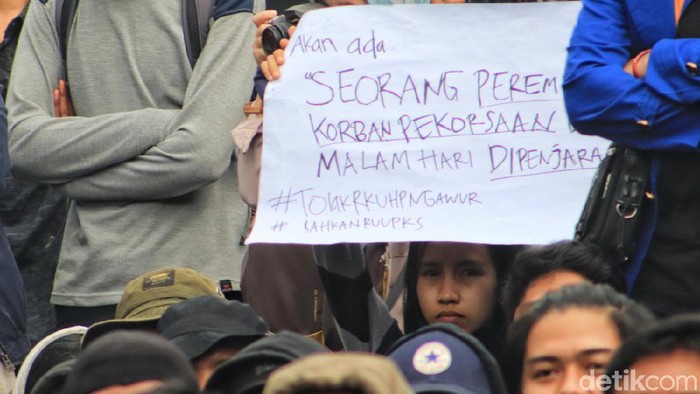 Akan ada.
"SEORANG PEREM
KORBAN PEKORSAAN
MALAM HARI DIPENJARA
#TOLAKRKUHPNGAWUR
# SAHKANRUUPKS
detikcom